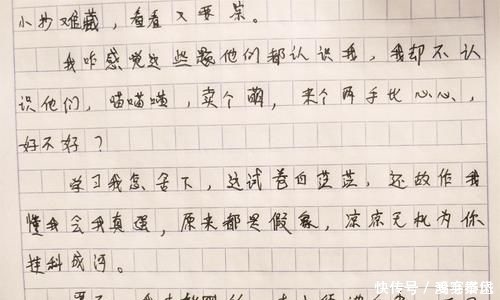 小抄难藏，看看又要呆。
我咋感觉这些题他们都认识我，我却不认
识他们，喵喵喵，卖个萌，来个两手比心心，
好不好？
学习我怎舍下，这试卷白茫茫，还故作我
懂我会我真强，原来都是假象，凉凉无机为你
挂科成河。
快传号／漫芜清欢